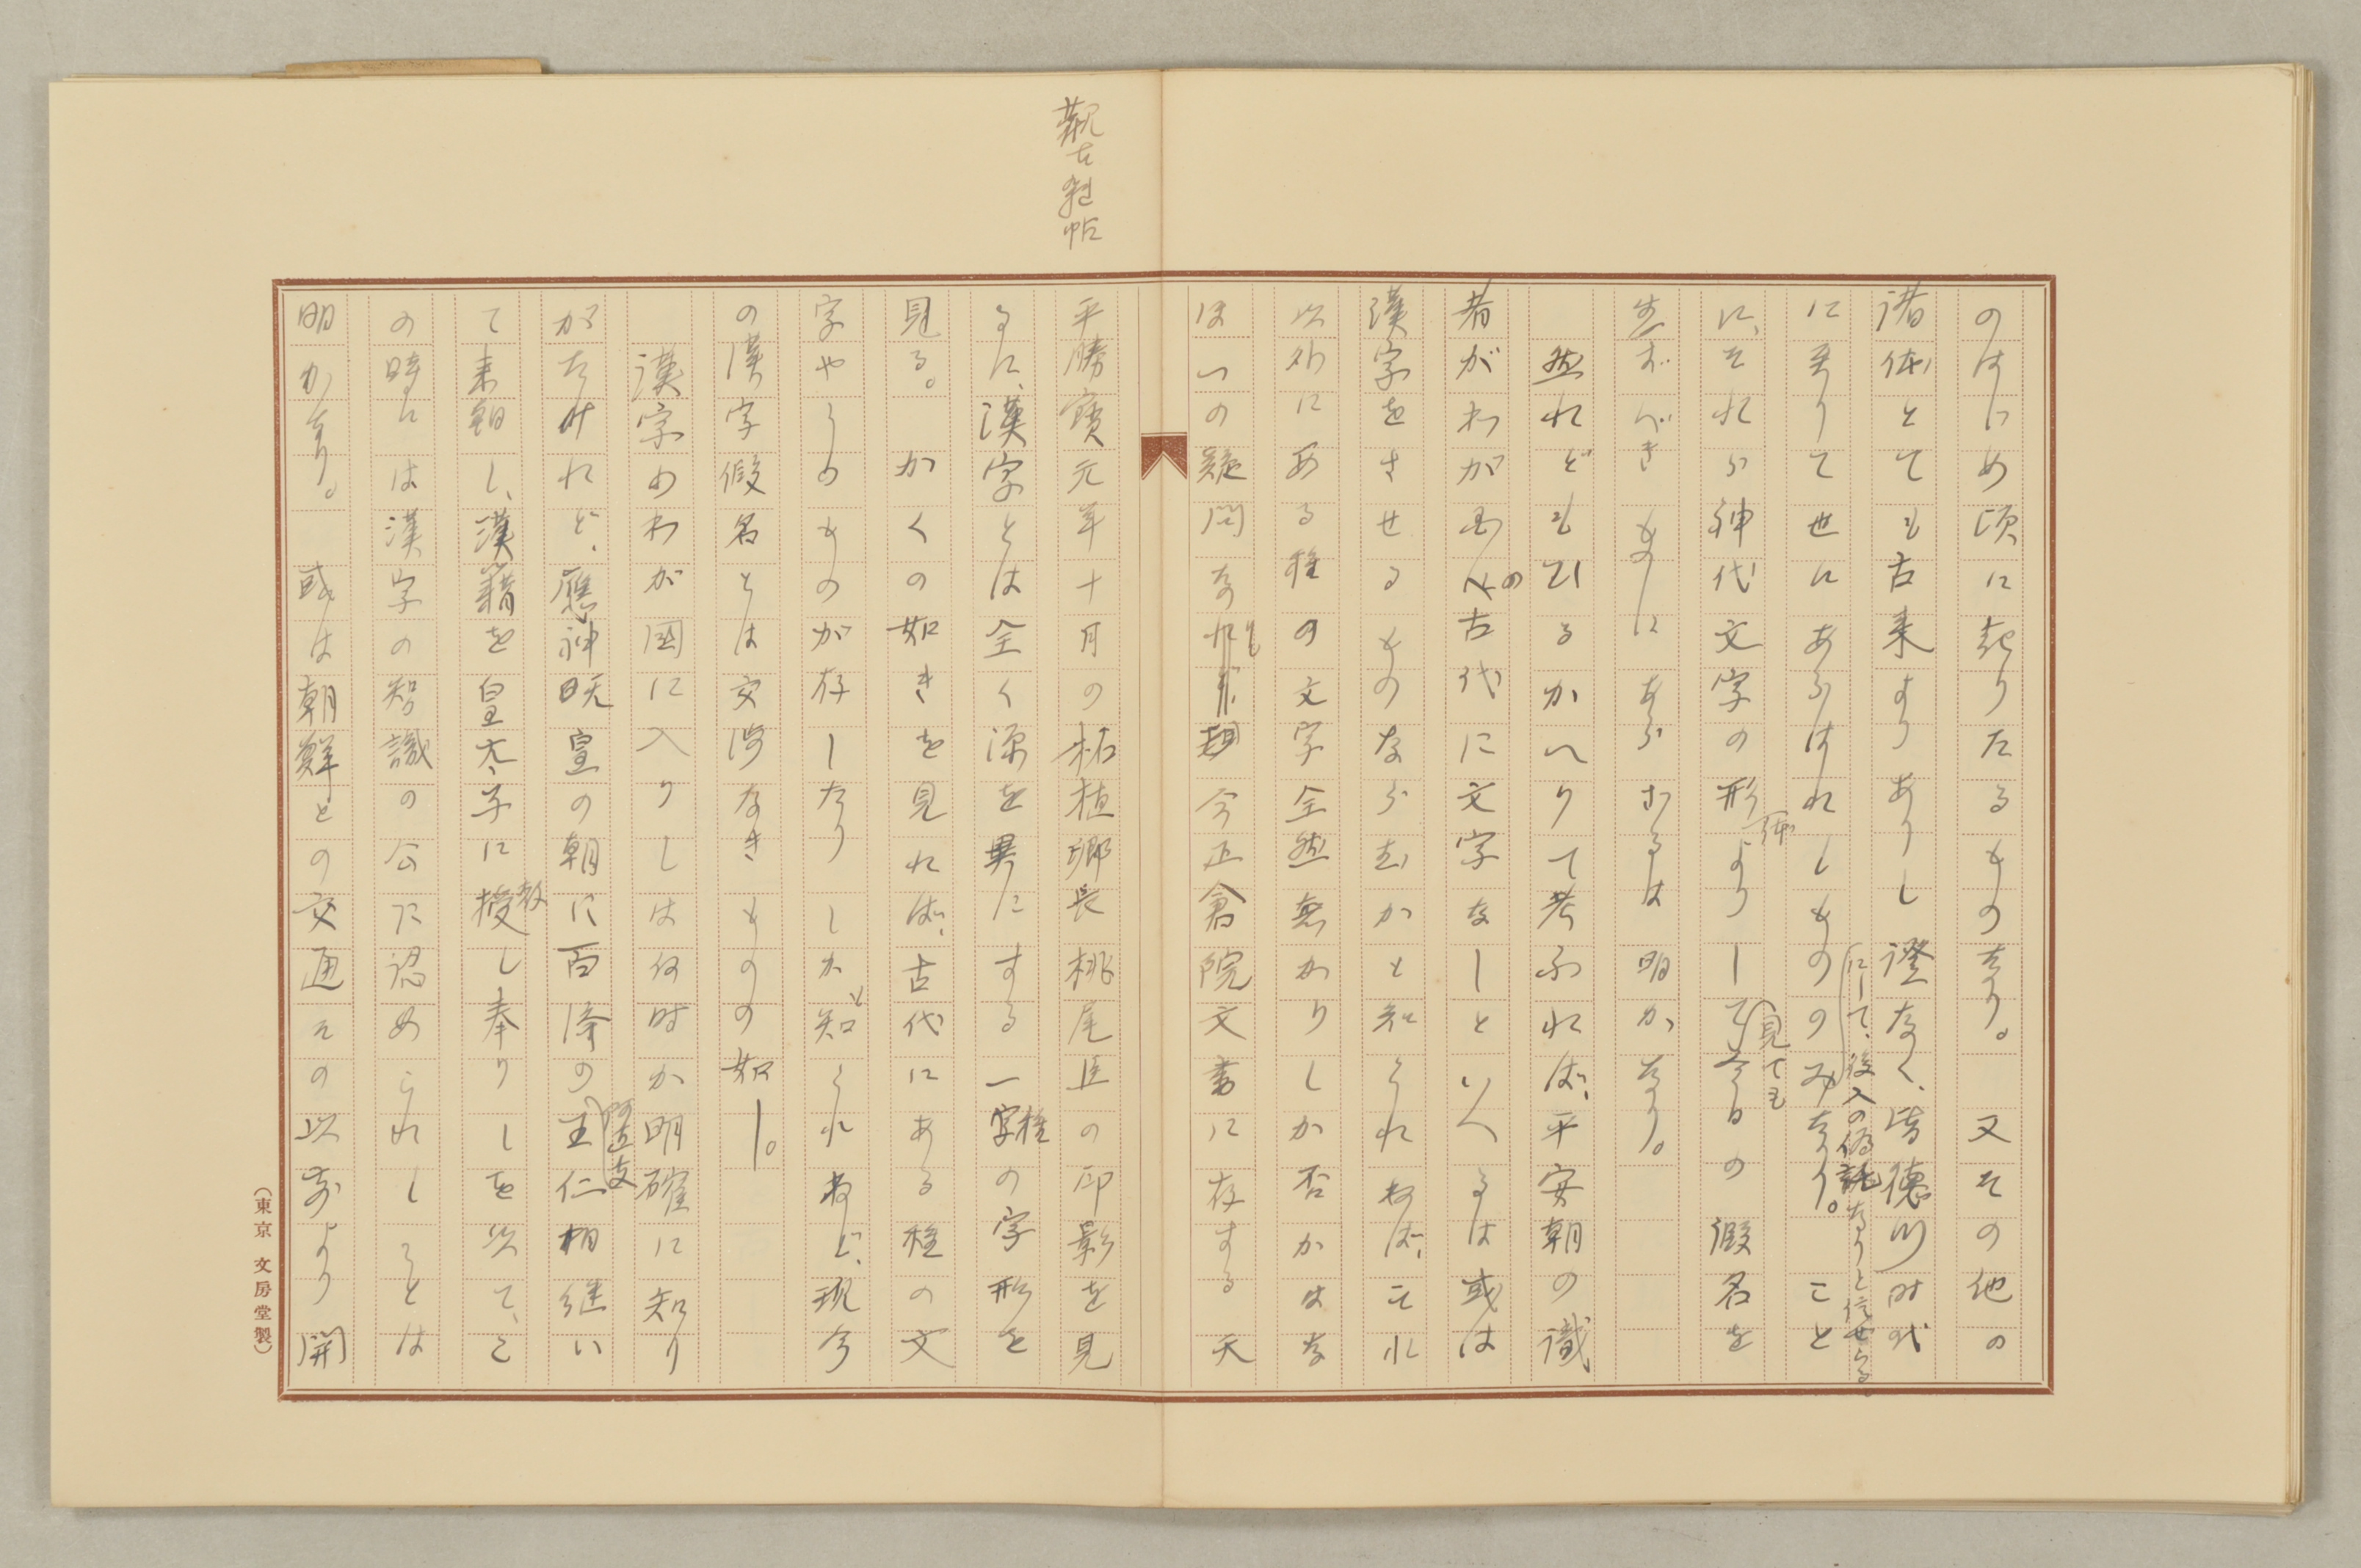 觀古雜帖
のはじめ頃に起りたるものなり。又その他の
諸体とても古来よりありし證なく、皆徳川時代
にして、後入の偽託なりと信せらる。
に至りて世にあらはれしもののみなり。こと
に、それら神代文字の形体よりして見ても今日の假名を
生ずべきものにあらざるは明かなり。
然れどもひるかへりて考ふれば、平安朝の識
者がわが国の古代に文字なしといへるは或は
漢字をさせるものならむかと知られねば、それ
以外にある種の文字全然無かりしか否かはな
ほ一の疑問なれども、今正倉院文書に存する天
平勝寶元年十月の柘植郷長桃尾臣の印影を見
るに、漢字とは全く源を異にする一種の字形を
見る。かくの如きを見れば、古代にある種の文
字やうのものが存しなりしかと知られねど、現今
の漢字假名とは交渉なきものの如し。
漢字のわが國に入りしは何時か明確に知り
がたけれど、應神天皇の朝に百済の阿直支王仁相継い
て来朝し、漢籍を皇太子に教授し奉りしを以て、こ
の時には漢字の智識の公に認められしことは
明かなり。或は朝鮮との交通その以前より開
(東京 文房堂製)